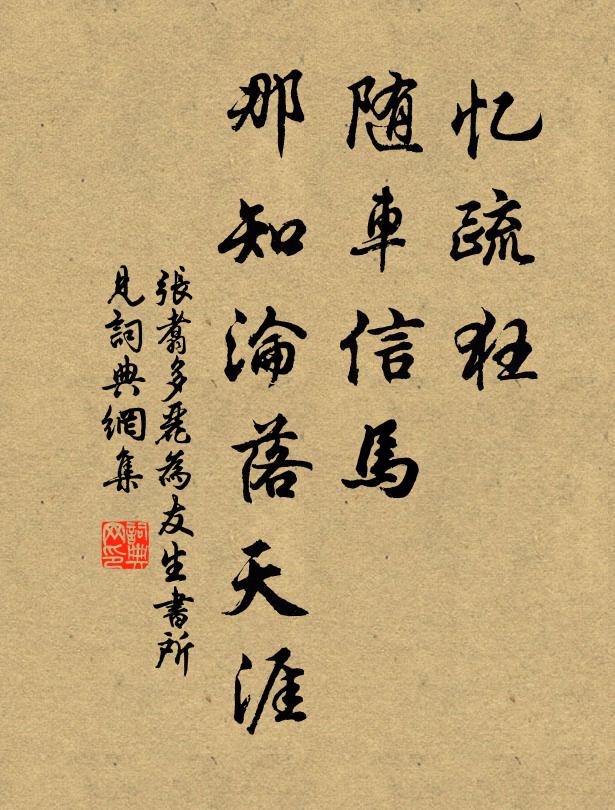 忆疏狂
随車信馬
那知淪落天涯
張翥多麗為友生書所
見詞典網集
詞典網印